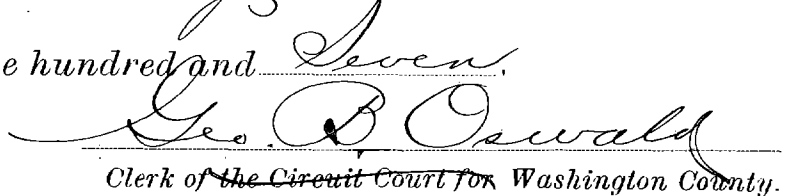 e hundred and Seven.
Geo. B. Oswald
Clerk of the Circuit Court for Washington County.